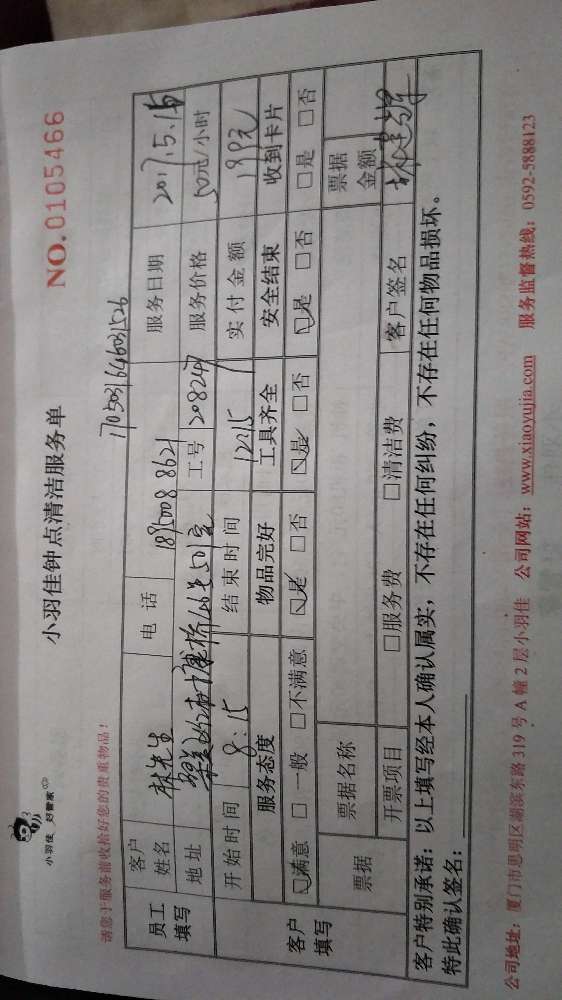 小羽佳 好管家
小羽佳钟点清洁服务单
NO.0105466
请您于服务前收拾好您的贵重物品!
170503164603526
员工填写 客户姓名 林先生 电话 18950088621 服务日期 2017.5.
地址 44号501室 工号 208247 服务价格 50元/小时
开始时间 8:15 结束时间 12:15 实付金额 199元
客户填写 服务态度 物品完好 工具齐全 安全结束 收到卡片
☑满意 □一般 □不满意 ☑是 □否 ☑是 □否 ☑是 □否 □是 □否
票据 票据名称 票据金额
开票项目 □服务费 □清洁费 客户签名
客户特别承诺:以上填写经本人确认属实,不存在任何纠纷,不存在任何物品损坏。
特此确认签名:
公司地址:厦门市思明区湖滨东路 319 号 A 幢 2 层小羽佳 公司网站:www.xiaoyujia.com 服务监督热线:0592-5888123